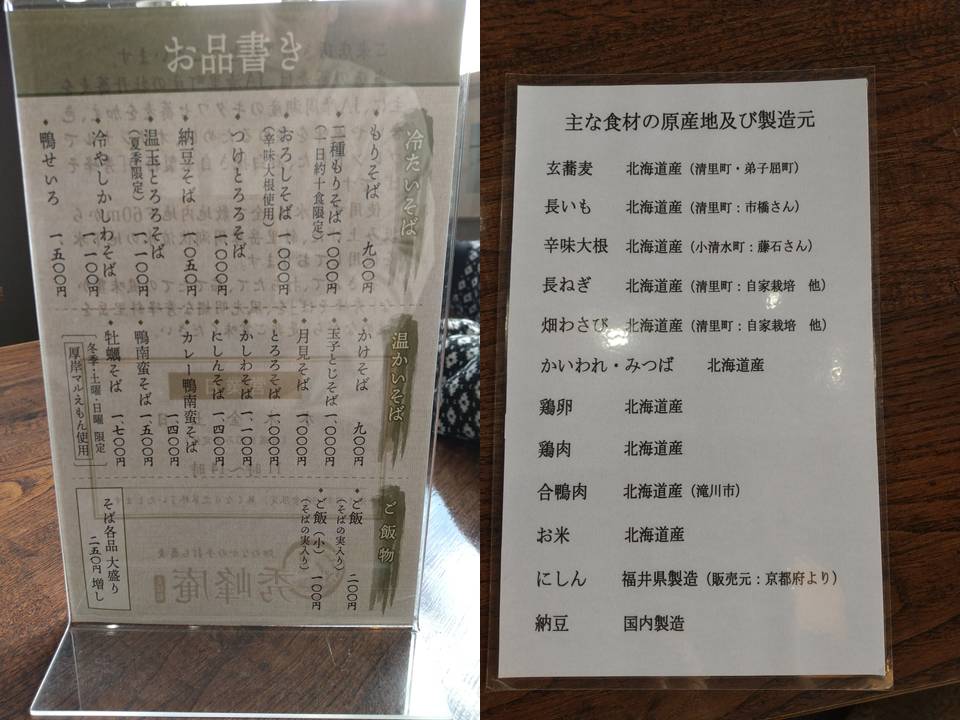 お品書き
冷たいそば
もりそば 九〇〇円
二種もりそば 一、〇〇〇円
(一日約十食限定)
おろしそば 一、〇〇〇円
(辛味大根使用)
つけとろろそば
一、一〇〇円
納豆そば 一、〇五〇円
温玉とろろそば
(夏季限定) 一、一〇〇円
冷やしかしわそば
一、一〇〇円
鴨せいろ 一、五〇〇円
温かいそば
かけそば 九〇〇円
玉子とじそば 一、〇〇〇円
月見そば 一、〇〇〇円
とろろそば 一、〇〇〇円
かしわそば 一、一〇〇円
にしんそば 一、四〇〇円
カレー鴨南蛮そば
一、四〇〇円
鴨南蛮そば 一、五〇〇円
牡蠣そば 一、七〇〇円
冬季・土曜・日曜 限定
厚岸マルえもん使用
ご飯物
ご飯 二〇〇円
(そばの実入り)
ご飯(小)
(そばの実入り) 一〇〇円
そば各品 大盛り
二五〇円 増し
秀峰庵
主な食材の原産地及び製造元
玄蕎麦 北海道産(清里町・弟子屈町)
長いも 北海道産(清里町:市橋さん)
辛味大根 北海道産(小清水町:藤石さん)
長ねぎ 北海道産(清里町:自家栽培 他)
畑わさび 北海道産(清里町:自家栽培 他)
かいわれ・みつば 北海道産
鶏卵 北海道産
鶏肉 北海道産
合鴨肉 北海道産(滝川市)
お米 北海道産
にしん 福井県製造(販売元:京都府より)
納豆 国内製造